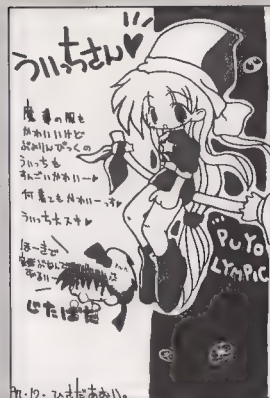 ういっちさん♥
魔導の服も
かわいいけど
ぷよりんぴっくの
ういっちも
すんごいかわいー♥
何着てもかわいーっす
ういっちスキ♥
ほーきで
じたばた
PUYO
LYMPIC
ひさだあおい。